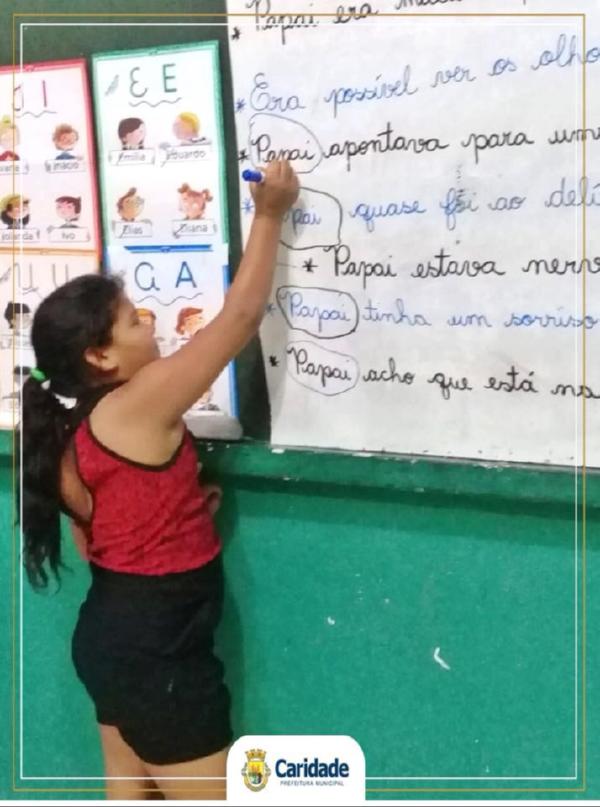 * Papai era
* Era possível ver os olho
* Papai apontava para um
* pai quase foi ao delí
* Papai estava nerv
* Papai tinha um sorriso
* Papai acho que está na
I
Inácio
Iolanda
Ivo
E E
Emília
Eduardo
Elias
Eliana
U U
A A
Caridade
PREFEITURA MUNICIPAL